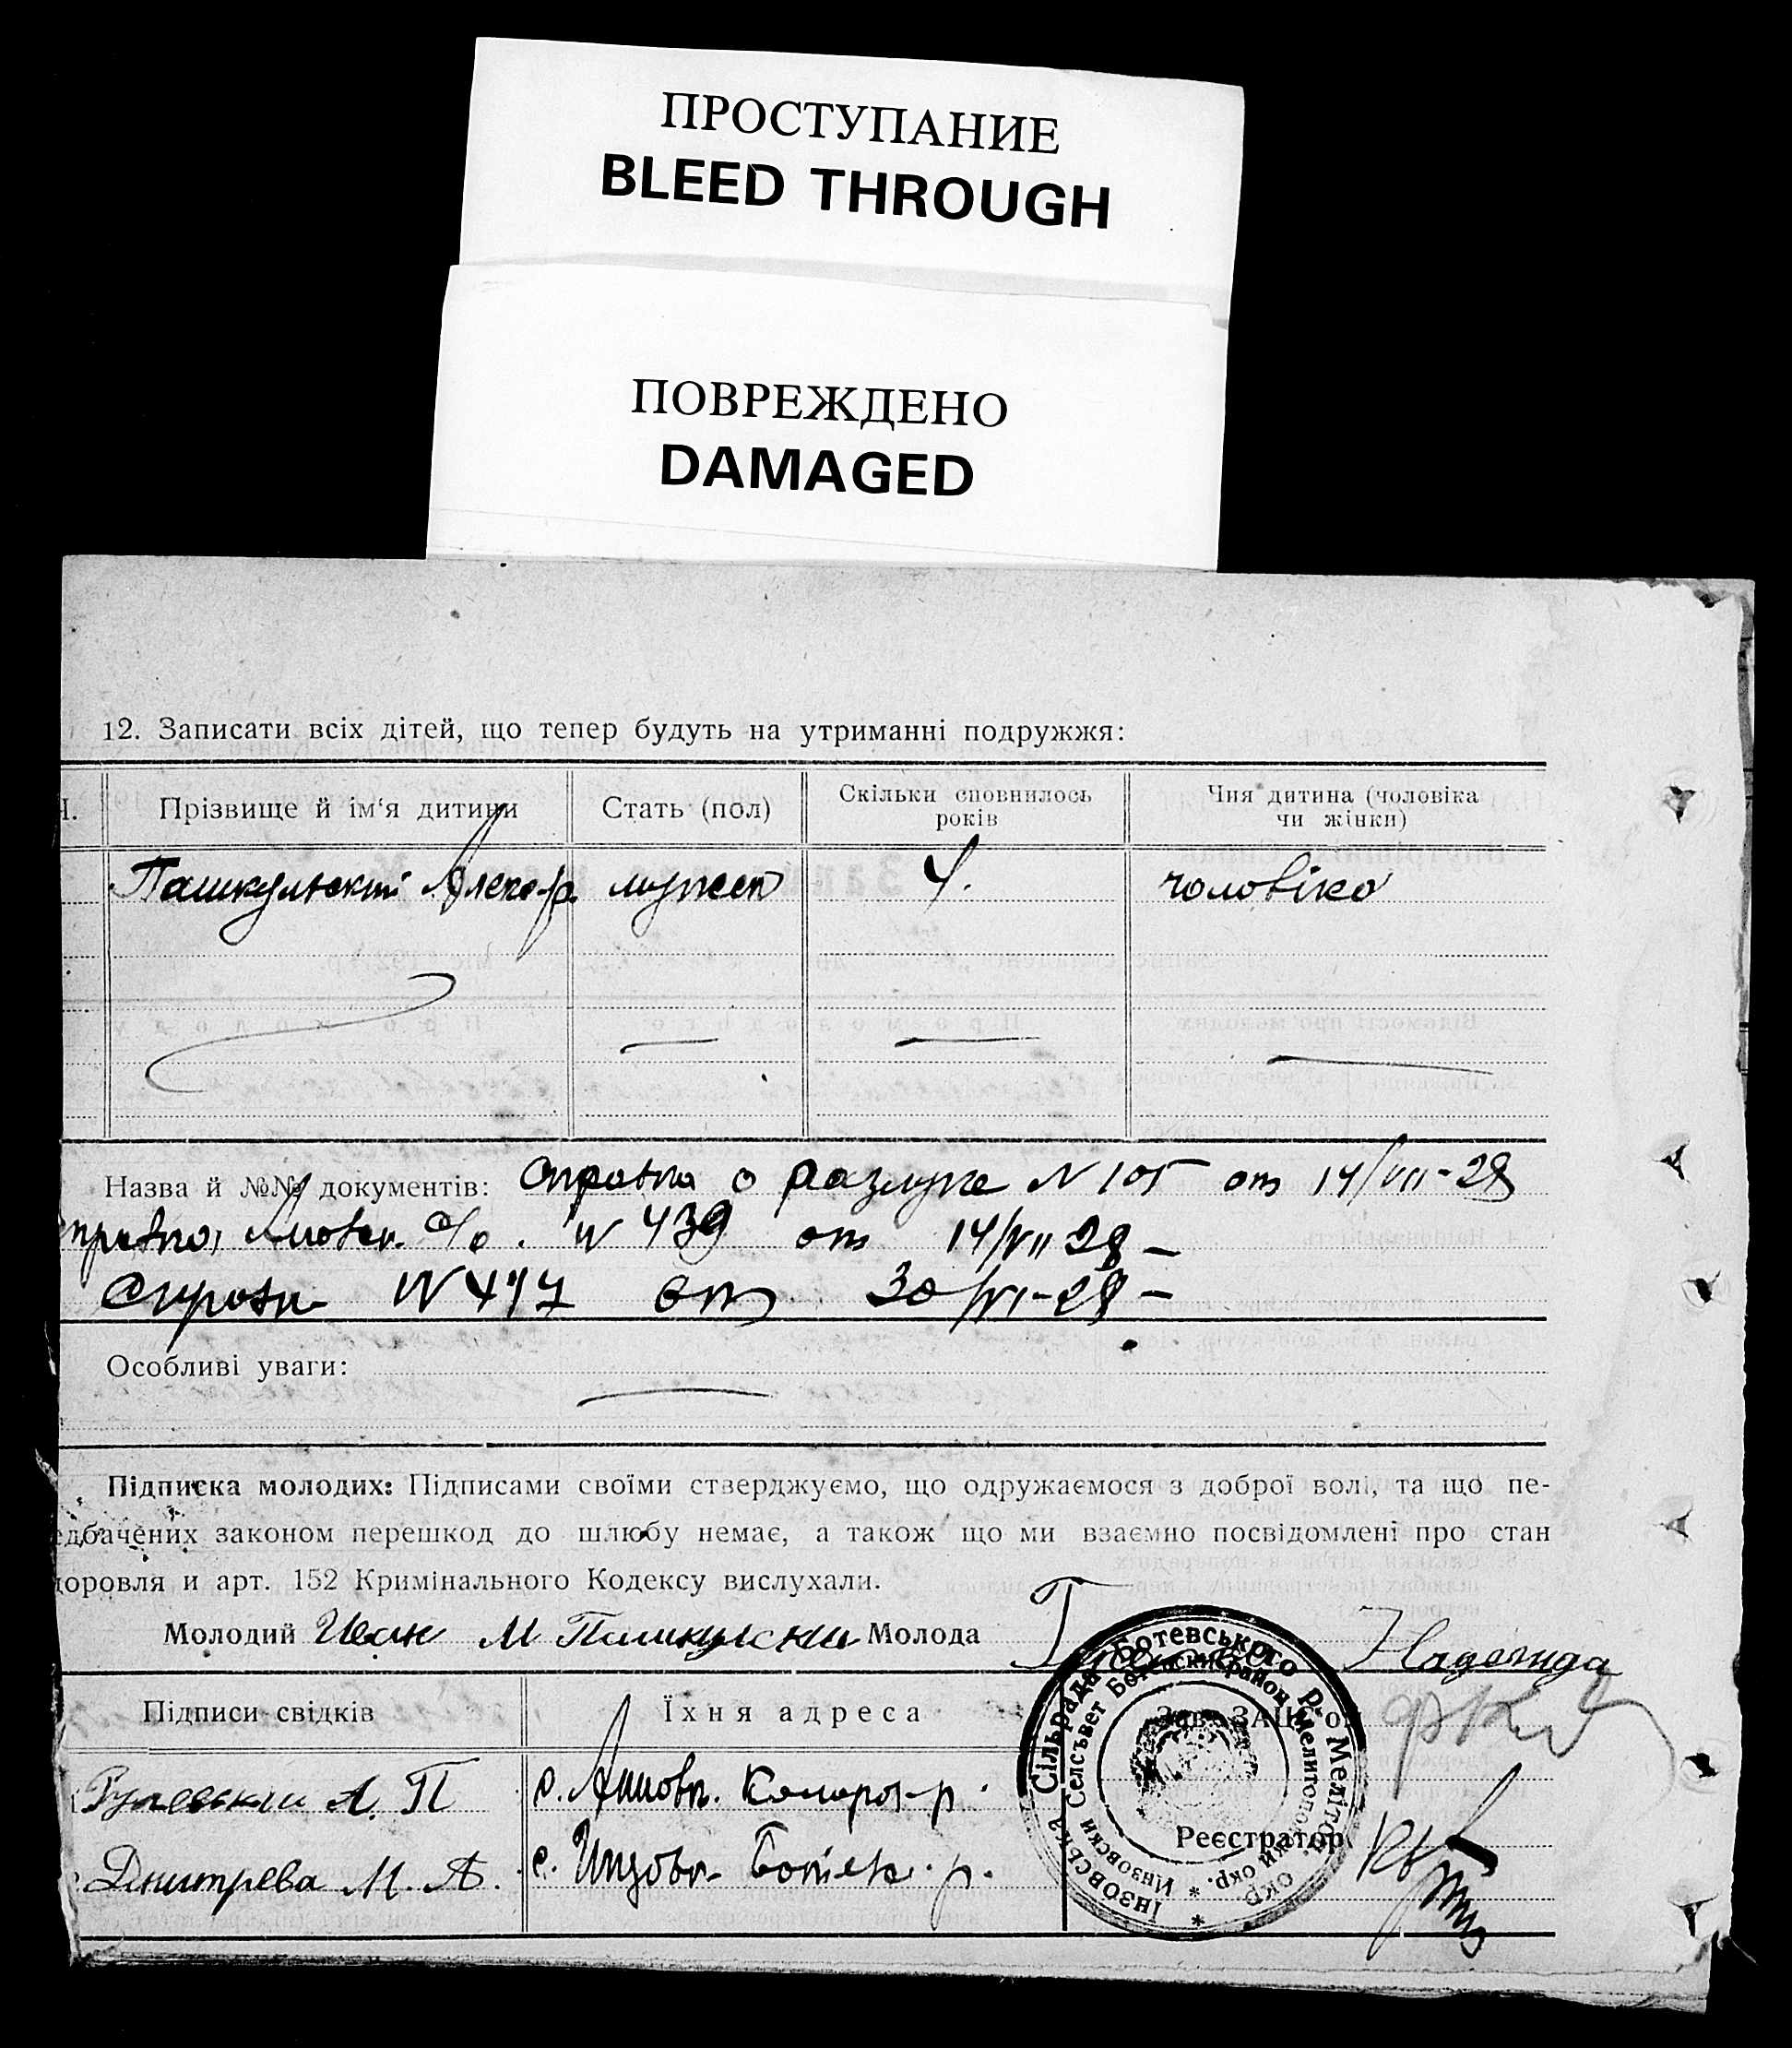 ПРОСТУПАНИЕ
BLEED THROUGH
ПОВРЕЖДЕНО
DAMAGED
12. Записати всіх дітей, що тепер будуть на утриманні подружжя:
Прізвище й ім'я дитини
Стать (пол)
Скільки сповнилось
років
Чия дитина (чоловіка
чи жінки)
Пашкульский Алекс-р.
мужеск
4.
чоловіка
Назва й №№ документів: Справка о разлуке N 105 от 14/VII-28
N 439 от 14/VII 28 –
Справка N 417 от 30/VI-28 –
Особливі уваги:
Підписка молодих: Підписами своїми стверджуємо, що одружаємося з доброї волі, та що пе-
едбачених законом перешкод до шлюбу немає, а також що ми взаємно посвідомлені про стан
доровля и арт. 152 Кримінального Кодексу вислухали.
Молодий Иван М Пашкульски Молода Надежда
Підписи свідків
Їхня адреса
Зав. ЗАЦС'ом
А. П
с. Анновк. р.
Дмитрева М. А.
с. Инзовк. Ботев. р.
Реєстратор
Інзовська Сільрада Ботевського р. Меліт. окр.
Инзовски Селсъвет Ботевски район Мелитополски окр.